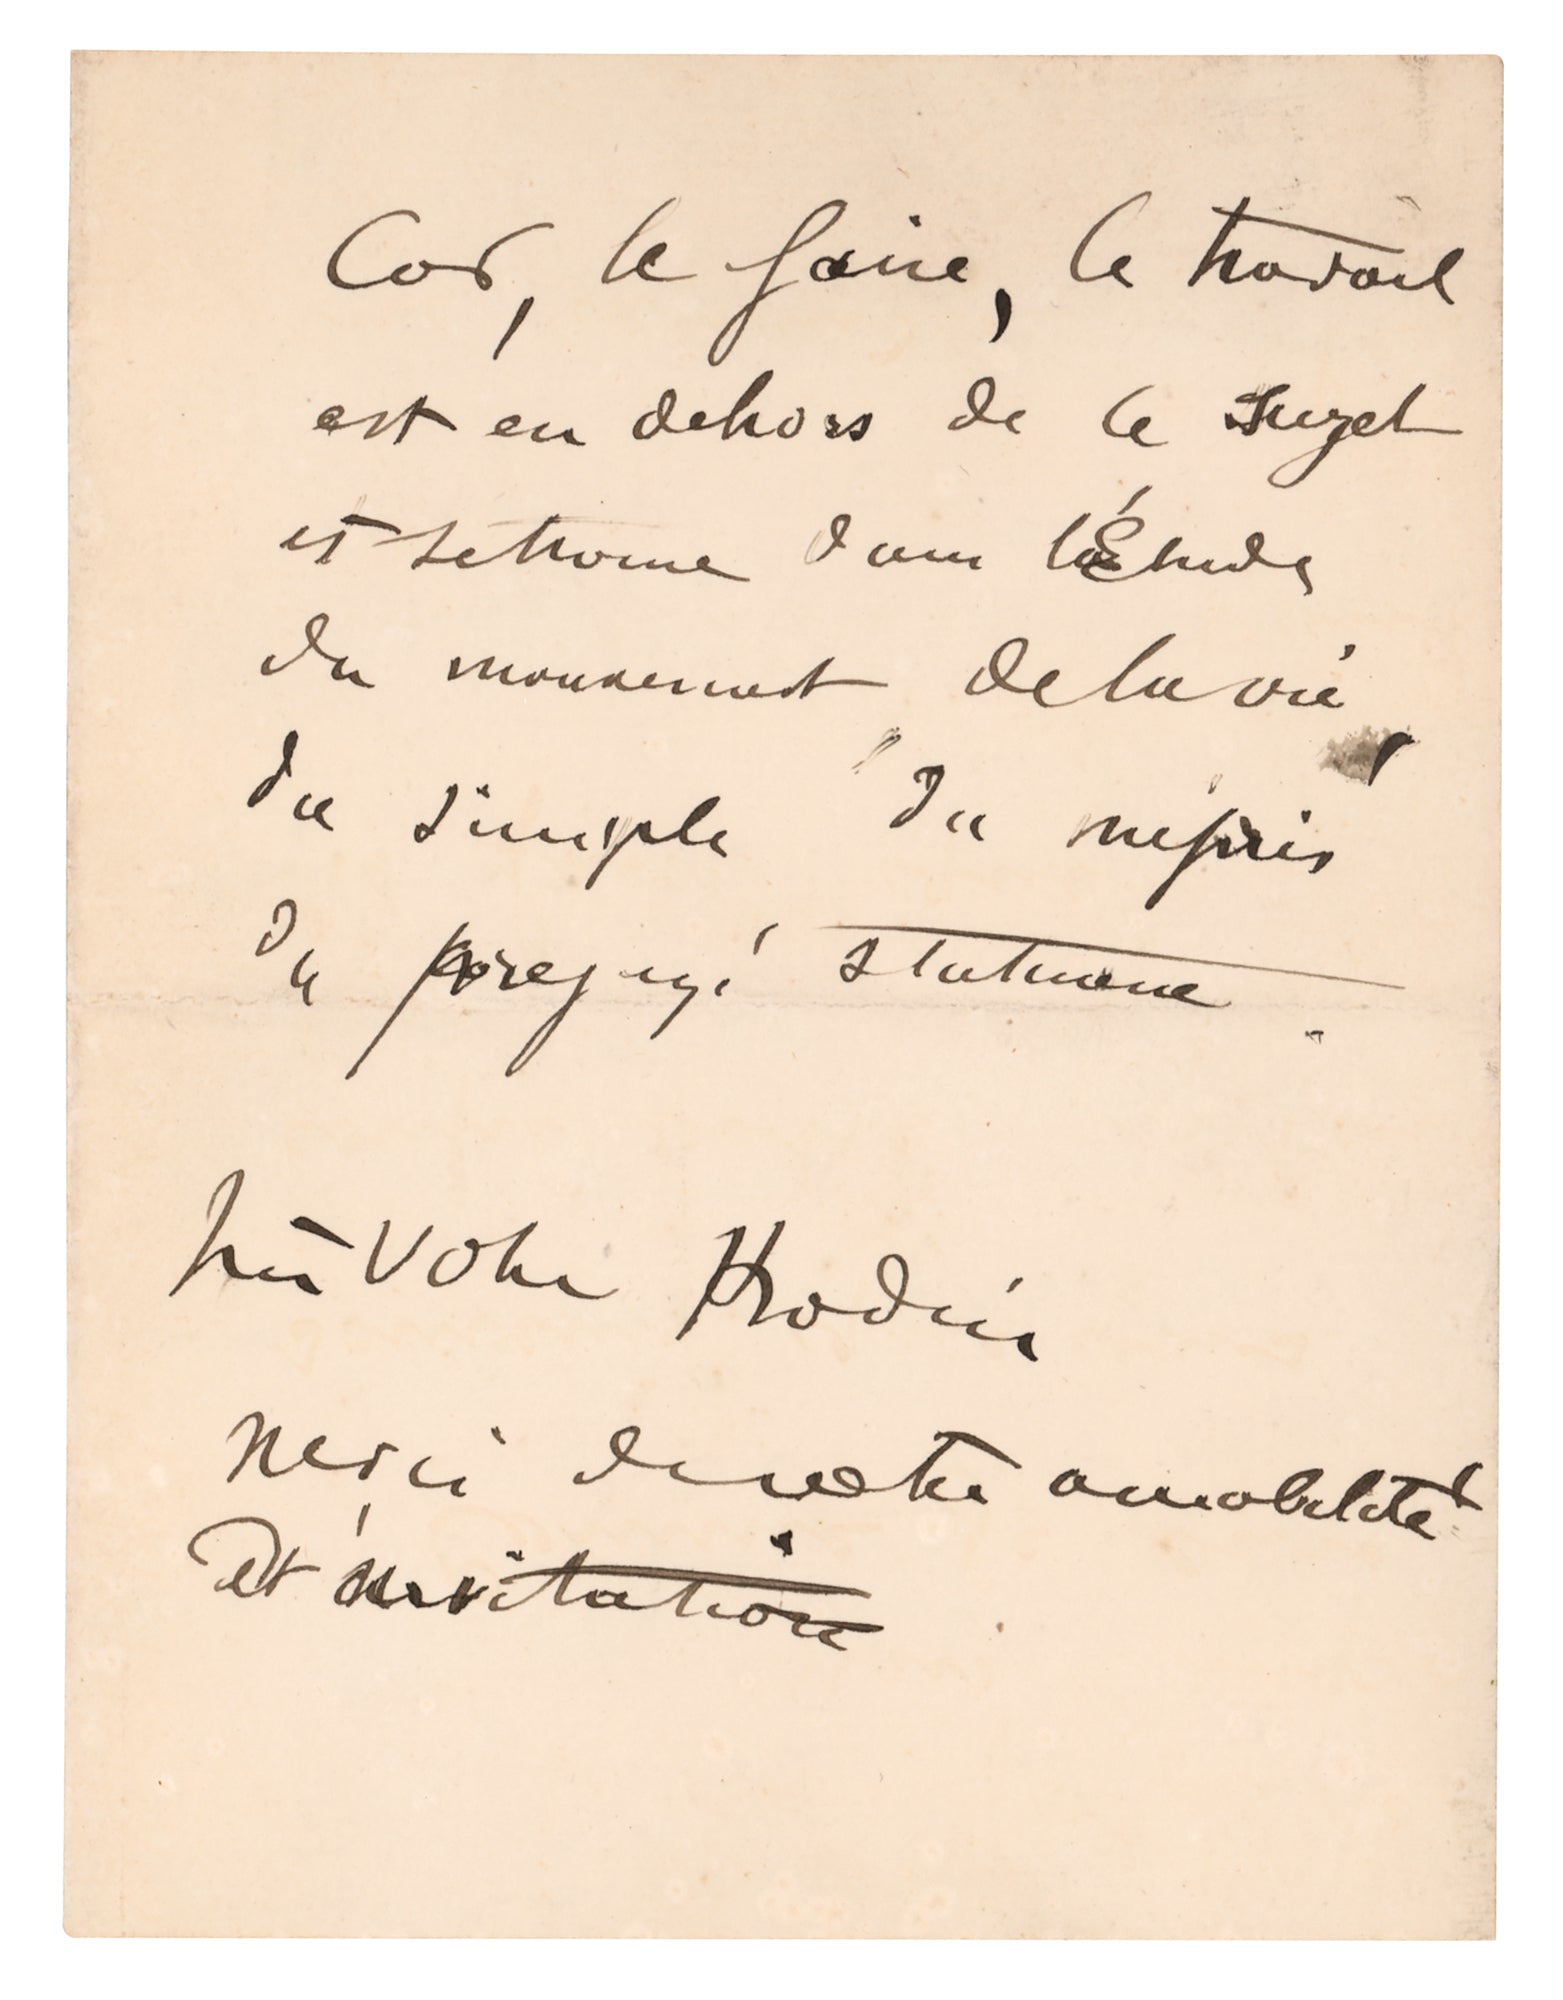 Car, le faire, le travail
est en dehors de le sujet
et se trouve dans l'Étude
du mouvement de la vie,
du simple du mépris
du prejugé statuaire.
bien votre ARodin
Merci de votre amabilité
et invitation